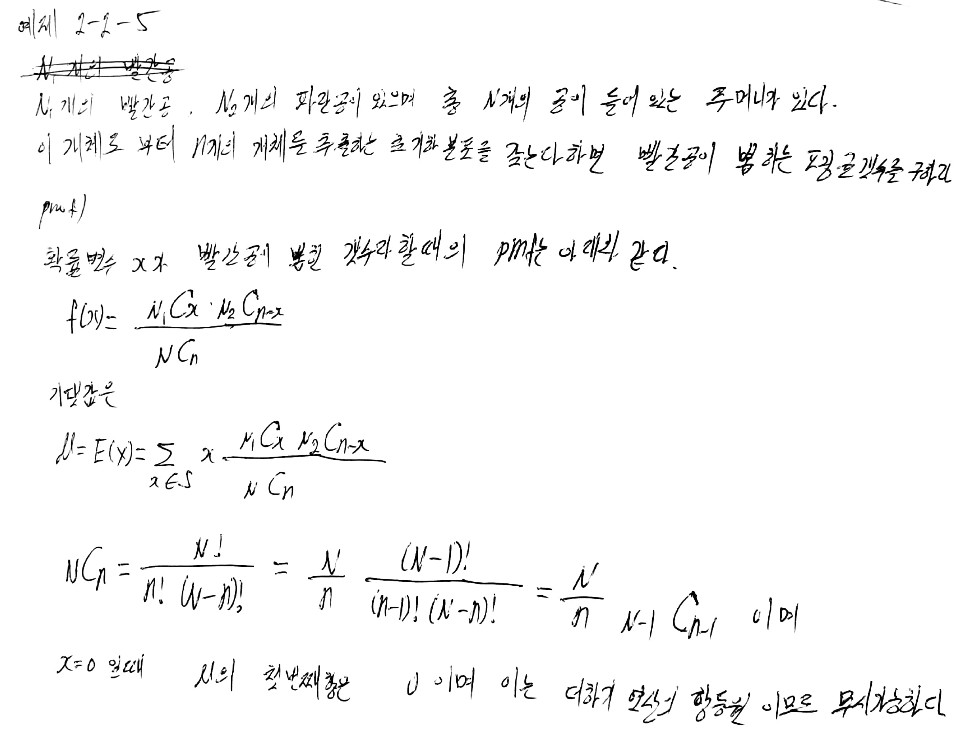 예제 2-2-5
N₁개의 빨간공
N₁개의 빨간공, N₂개의 파란공이 있으며 총 N개의 공이 들어 있는 주머니가 있다.
이 개체로 부터 n개의 개체를 추출하는 초기하 분포를 갖는다하면 빨간공이 뽑히는 평균갯수를 구하라
proof)
확률변수 x가 빨간공이 뽑힌 갯수라 할때의 pmf는 아래와 같다.
f(x) = N₁Cx · N₂Cn-x / NCn
기댓값은
μ = E(x) = Σ x∈S x N₁Cx N₂Cn-x / NCn
NCn = N! / n! (N-n)! = N/n (N-1)! / (n-1)! (N-n)! = N/n N-1Cn-1 이며
x=0 일때 μ의 첫번째항은 0 이며 이는 더하기 연산의 항등원 이므로 무시가능하다